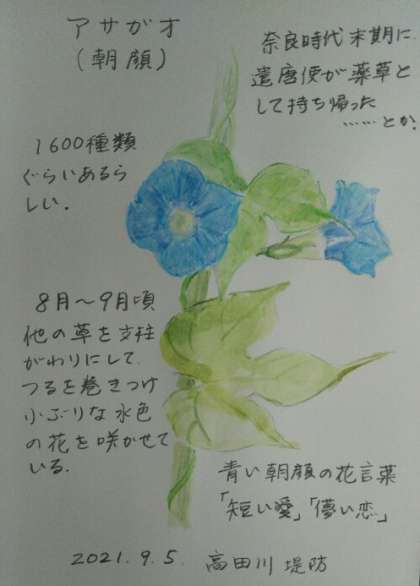 アサガオ
(朝顔)
奈良時代末期に
遣唐使が薬草と
して持ち帰った
……とか.
1600種類
ぐらいあるら
しい.
8月〜9月頃
他の草を支柱
がわりにして.
つるを巻きつけ
小ぶりな水色
の花を咲かせて
いる.
青い朝顔の花言葉
「短い愛」「儚い恋」
2021.9.5. 高田川 堤防